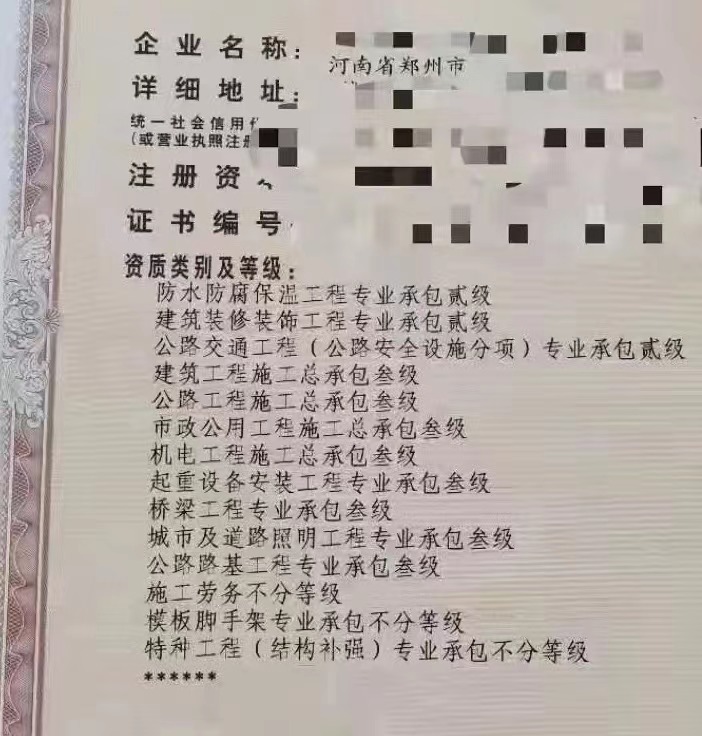 企业名称：
河南省郑州市
详细地址：
统一社会信用
(或营业执照注册
注册资
证书编号
资质类别及等级：
防水防腐保温工程专业承包贰级
建筑装修装饰工程专业承包贰级
公路交通工程（公路安全设施分项）专业承包贰级
建筑工程施工总承包叁级
公路工程施工总承包叁级
市政公用工程施工总承包叁级
机电工程施工总承包叁级
起重设备安装工程专业承包叁级
桥梁工程专业承包叁级
城市及道路照明工程专业承包叁级
公路路基工程专业承包叁级
施工劳务不分等级
模板脚手架专业承包不分等级
特种工程（结构补强）专业承包不分等级
******